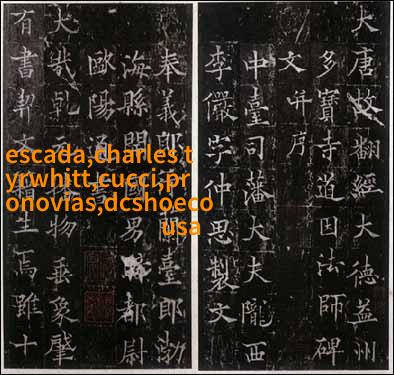 大唐故翻經大德益州
多寶寺道因法師碑
文并序
中臺司藩大夫隴西
李儼字仲思製文
奉義郎行蘭臺郎渤
海縣開國男都尉
歐陽通
大哉乾元物垂象肇
有書契文籍生焉雖十
escada,charles t
yrwhitt,cucci,pr
onovias,dcshoeco
usa